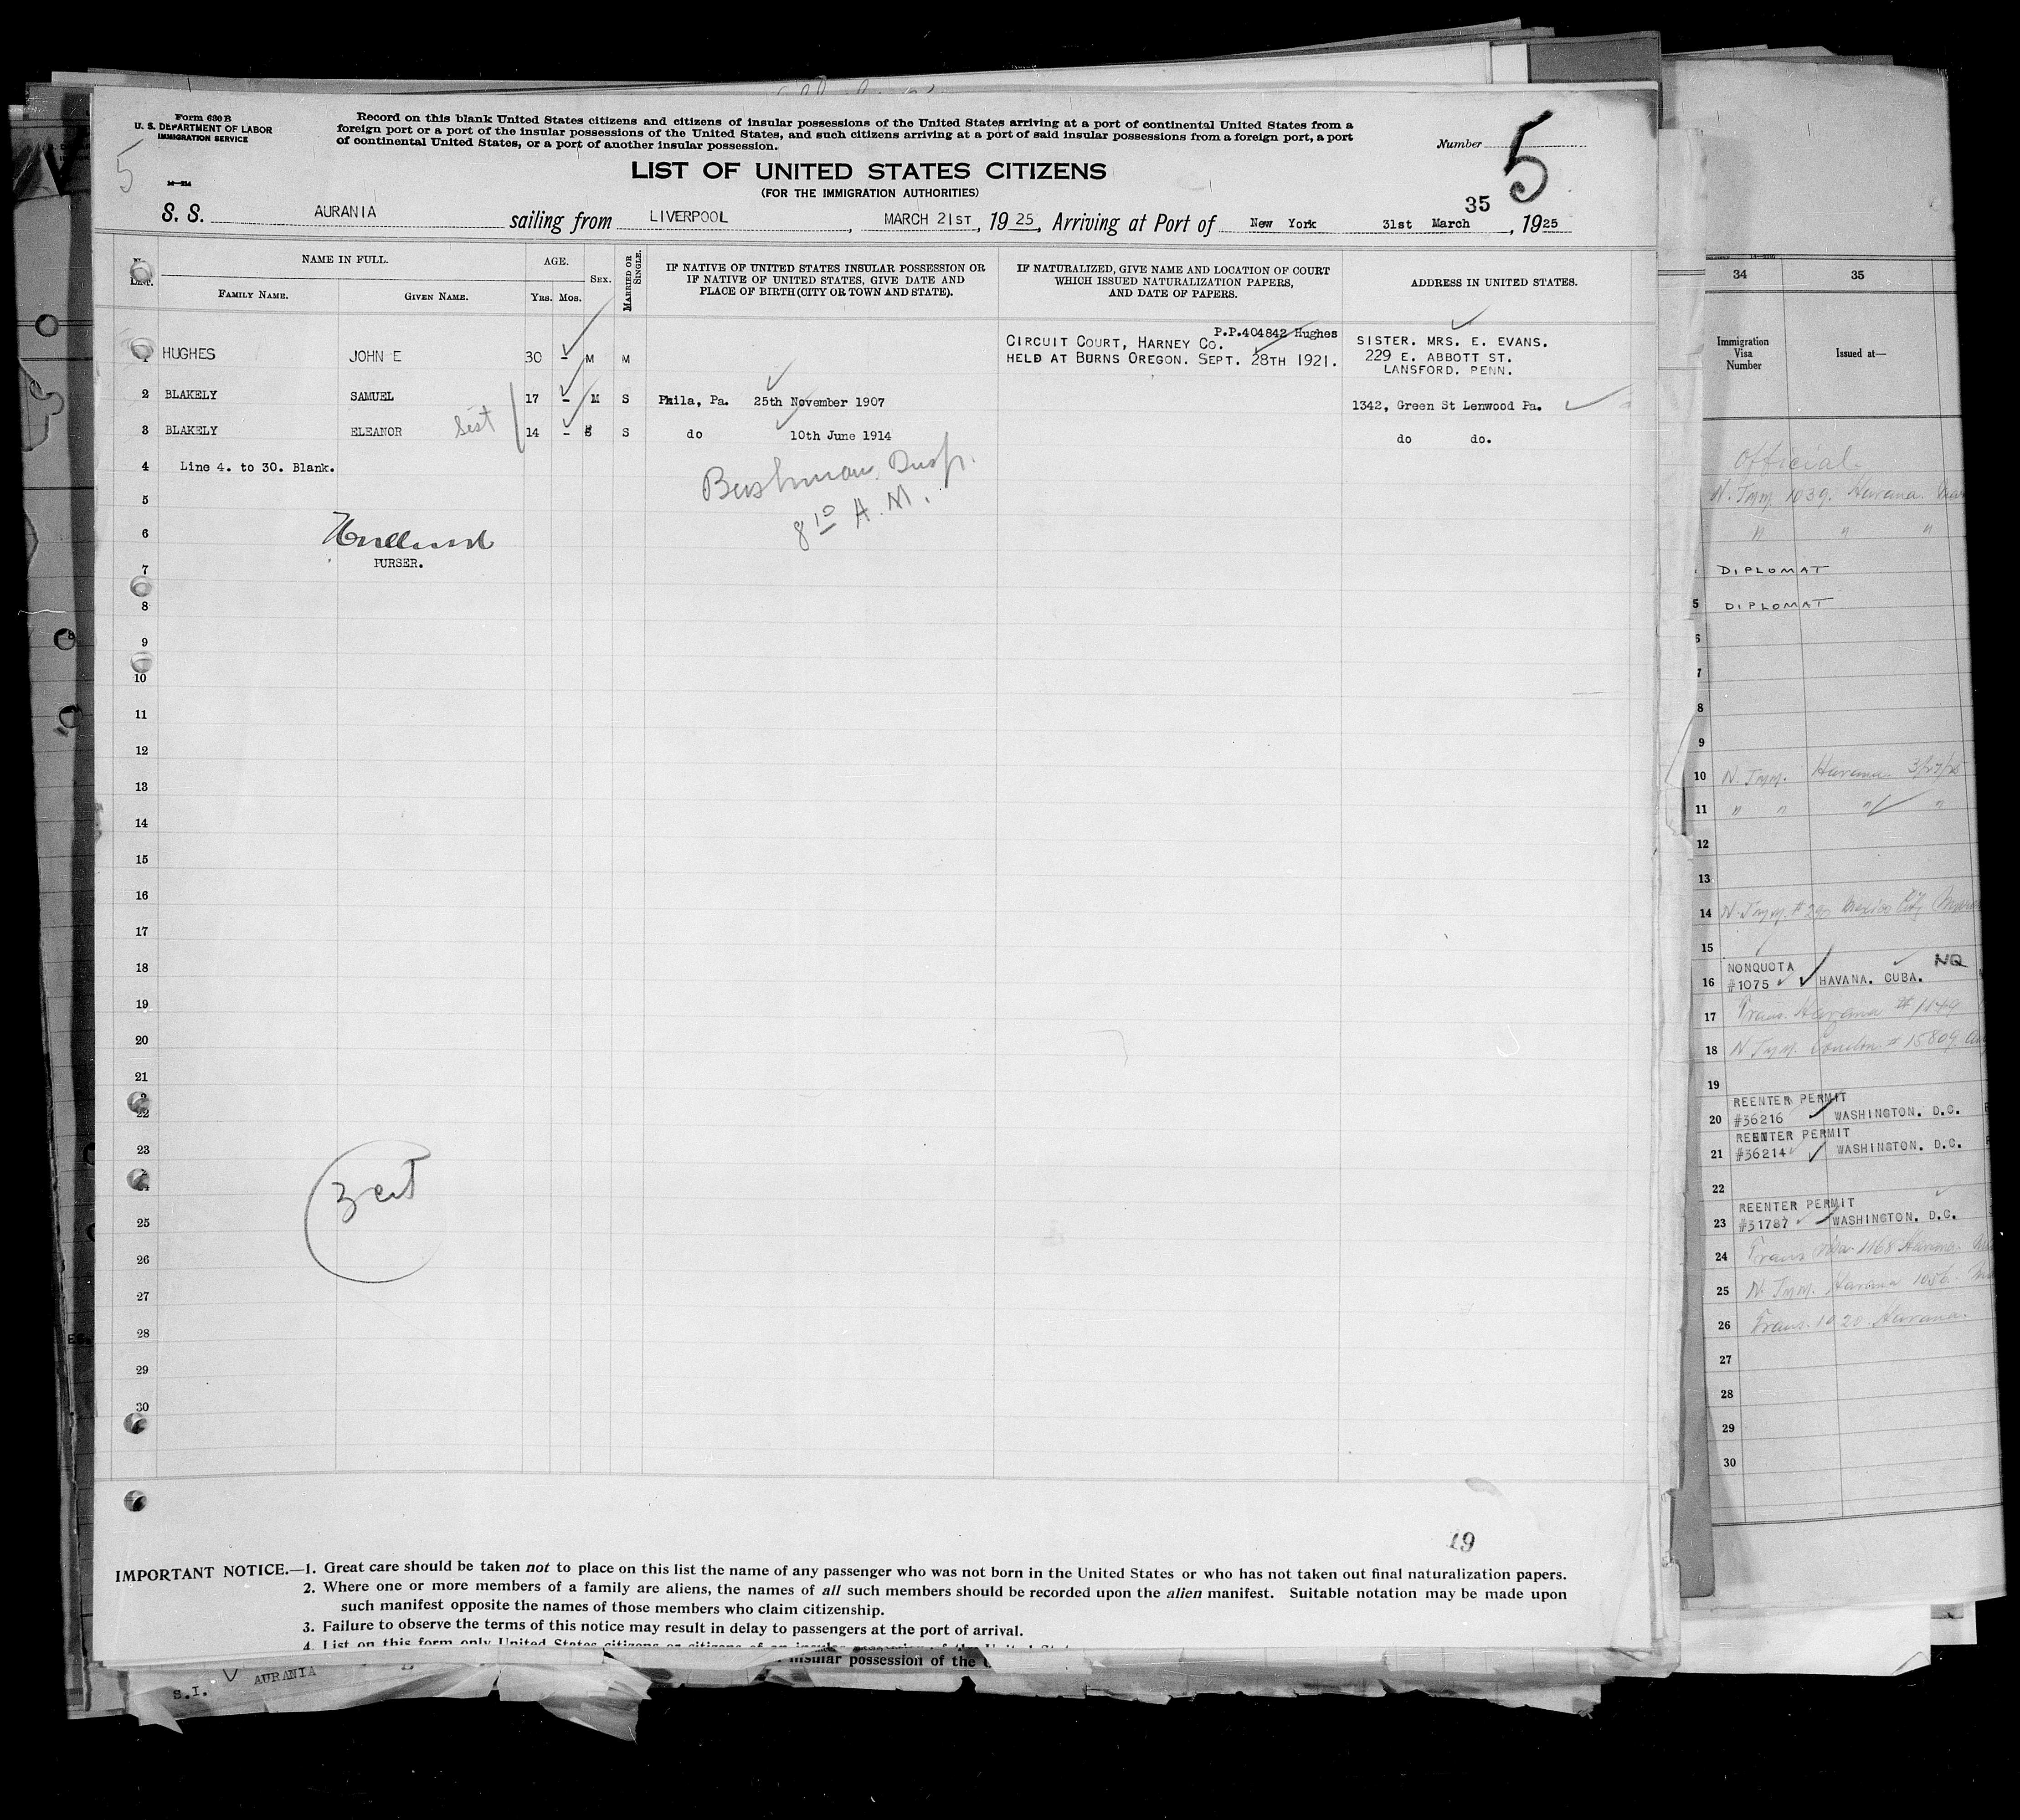 Form 630 B
U. S. DEPARTMENT OF LABOR
IMMIGRATION SERVICE
Record on this blank United States citizens and citizens of insular possessions of the United States arriving at a port of continental United States from a
foreign port or a port of the insular possessions of the United States, and such citizens arriving at a port of said insular possessions from a foreign port, a port
of continental United States, or a port of another insular possession.
Number 5
5
14—214
LIST OF UNITED STATES CITIZENS
(FOR THE IMMIGRATION AUTHORITIES)
35
S. S. AURANIA sailing from LIVERPOOL, MARCH 21ST, 1925, Arriving at Port of New York 31st March, 1925
No. on List.
NAME IN FULL.
FAMILY NAME. GIVEN NAME.
AGE.
YRS. MOS.
SEX.
MARRIED OR SINGLE.
IF NATIVE OF UNITED STATES INSULAR POSSESSION OR
IF NATIVE OF UNITED STATES, GIVE DATE AND
PLACE OF BIRTH (CITY OR TOWN AND STATE).
IF NATURALIZED, GIVE NAME AND LOCATION OF COURT
WHICH ISSUED NATURALIZATION PAPERS,
AND DATE OF PAPERS.
ADDRESS IN UNITED STATES.
P.P.404842 Hughes
1 HUGHES JOHN E 30 - M M CIRCUIT COURT, HARNEY CO.
HELD AT BURNS OREGON. SEPT. 28TH 1921.
SISTER. MRS. E. EVANS.
229 E. ABBOTT ST.
LANSFORD. PENN.
2 BLAKELY SAMUEL 17 - M S Phila, Pa. 25th November 1907 1342, Green St Lenwood Pa.
3 BLAKELY ELEANOR Sist 14 - S do 10th June 1914 do do.
4 Line 4. to 30. Blank.
8 10 A.M.
5
6
PURSER.
7
8
9
10
11
12
13
14
15
16
17
18
19
20
21
22
23
24
3 cit
25
26
27
28
29
30
19
IMPORTANT NOTICE.—1. Great care should be taken not to place on this list the name of any passenger who was not born in the United States or who has not taken out final naturalization papers.
2. Where one or more members of a family are aliens, the names of all such members should be recorded upon the alien manifest. Suitable notation may be made upon
such manifest opposite the names of those members who claim citizenship.
3. Failure to observe the terms of this notice may result in delay to passengers at the port of arrival.
4. List on this form only United States citizens or citizens of an insular possession of the United
insular possession of the
S.I. AURANIA
34 35
Immigration
Visa
Number
Issued at—
Official
N. Imm. 1039. Havana.
" " "
DIPLOMAT
5 DIPLOMAT
6
7
8
9
10 N. Imm. Havana
11 " " " "
12
13
14 N. Imm. Mexico City
15
NONQUOTA NQ
16 #1075 HAVANA. CUBA.
17 Trans. Havana # 1149
18 N Imm. London # 15809
19
REENTER PERMIT
20 #36216 WASHINGTON. D.C.
REENTER PERMIT
21 #36214 WASHINGTON. D.C.
22
REENTER PERMIT
23 #31787 WASHINGTON. D.C.
24 Trans 1168 Havana.
25 N. Imm. Havana 1056
26 Trans. 1020. Havana.
27
28
29
30